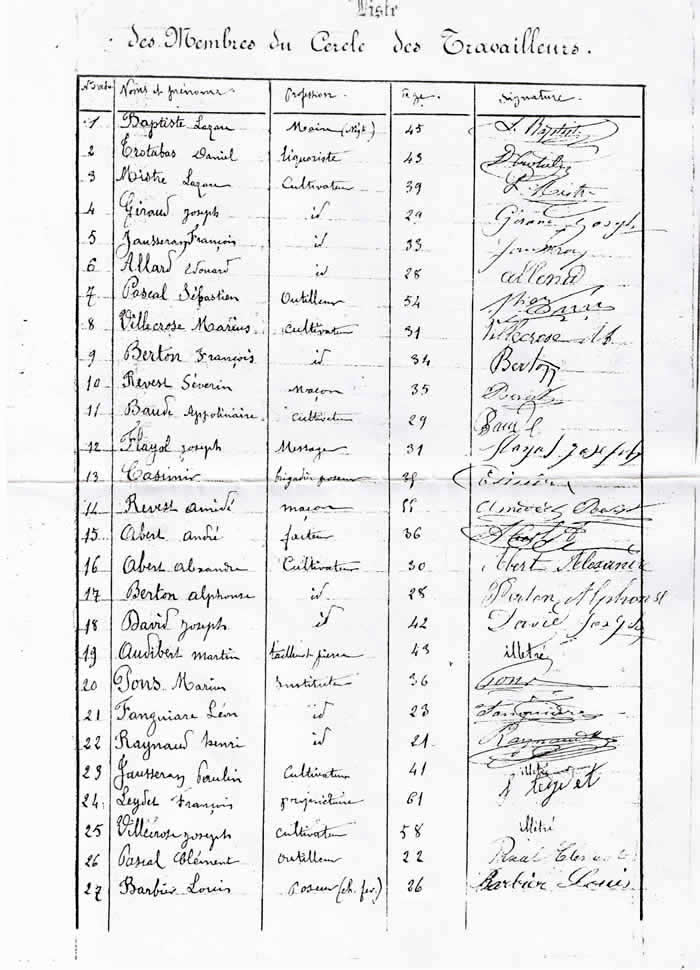 Liste
des Membres du Cercle des Travailleurs.
Noms et prénoms. Profession. Age. Signature.
1 Baptiste Lazare Maire 45 L. Baptiste
2 Trotabas Daniel liquoriste 43
3 Mistre Lazare Cultivateur 39 L. Mistre
4 Giraud Joseph id 29 Giraud Joseph
5 Jausseran François id 33
6 Allard Edouard id 28 allard
7 Pascal Sébastien Outilleur 54
8 Villecrose Marius Cultivateur 31 Villecrose M
9 Berton François id 34 Berton
10 Revest Séverin Maçon 35
11 Baude Appolinaire Cultivateur 29
12 Flayol Joseph Messager 31 Flayol Joseph
13 Casimir brigadier poseur
14 Revest amédé maçon 55
15 Abert André facteur 36
16 Abert alexandre Cultivateur 30 Abert Alexandre
17 Berton alphonse id 28 Berton Alphonse
18 David Joseph id 42 David Joseph
19 Audibert martin tailleur pierre 43 illetré
20 Pons Marius Instituteur 36 Pons
21 Fanguiare Léon id 23
22 Raynaud henri id 21 Raynaud
23 Jausseran Paulin Cultivateur 41 illetré
24 Leydet François propriétaire 61 f leydet
25 Villecrose Joseph cultivateur 58 illétré
26 Pascal Clément outilleur 22
27 Barbier Louis Poseur (ch. fer.) 26 Barbier Louis